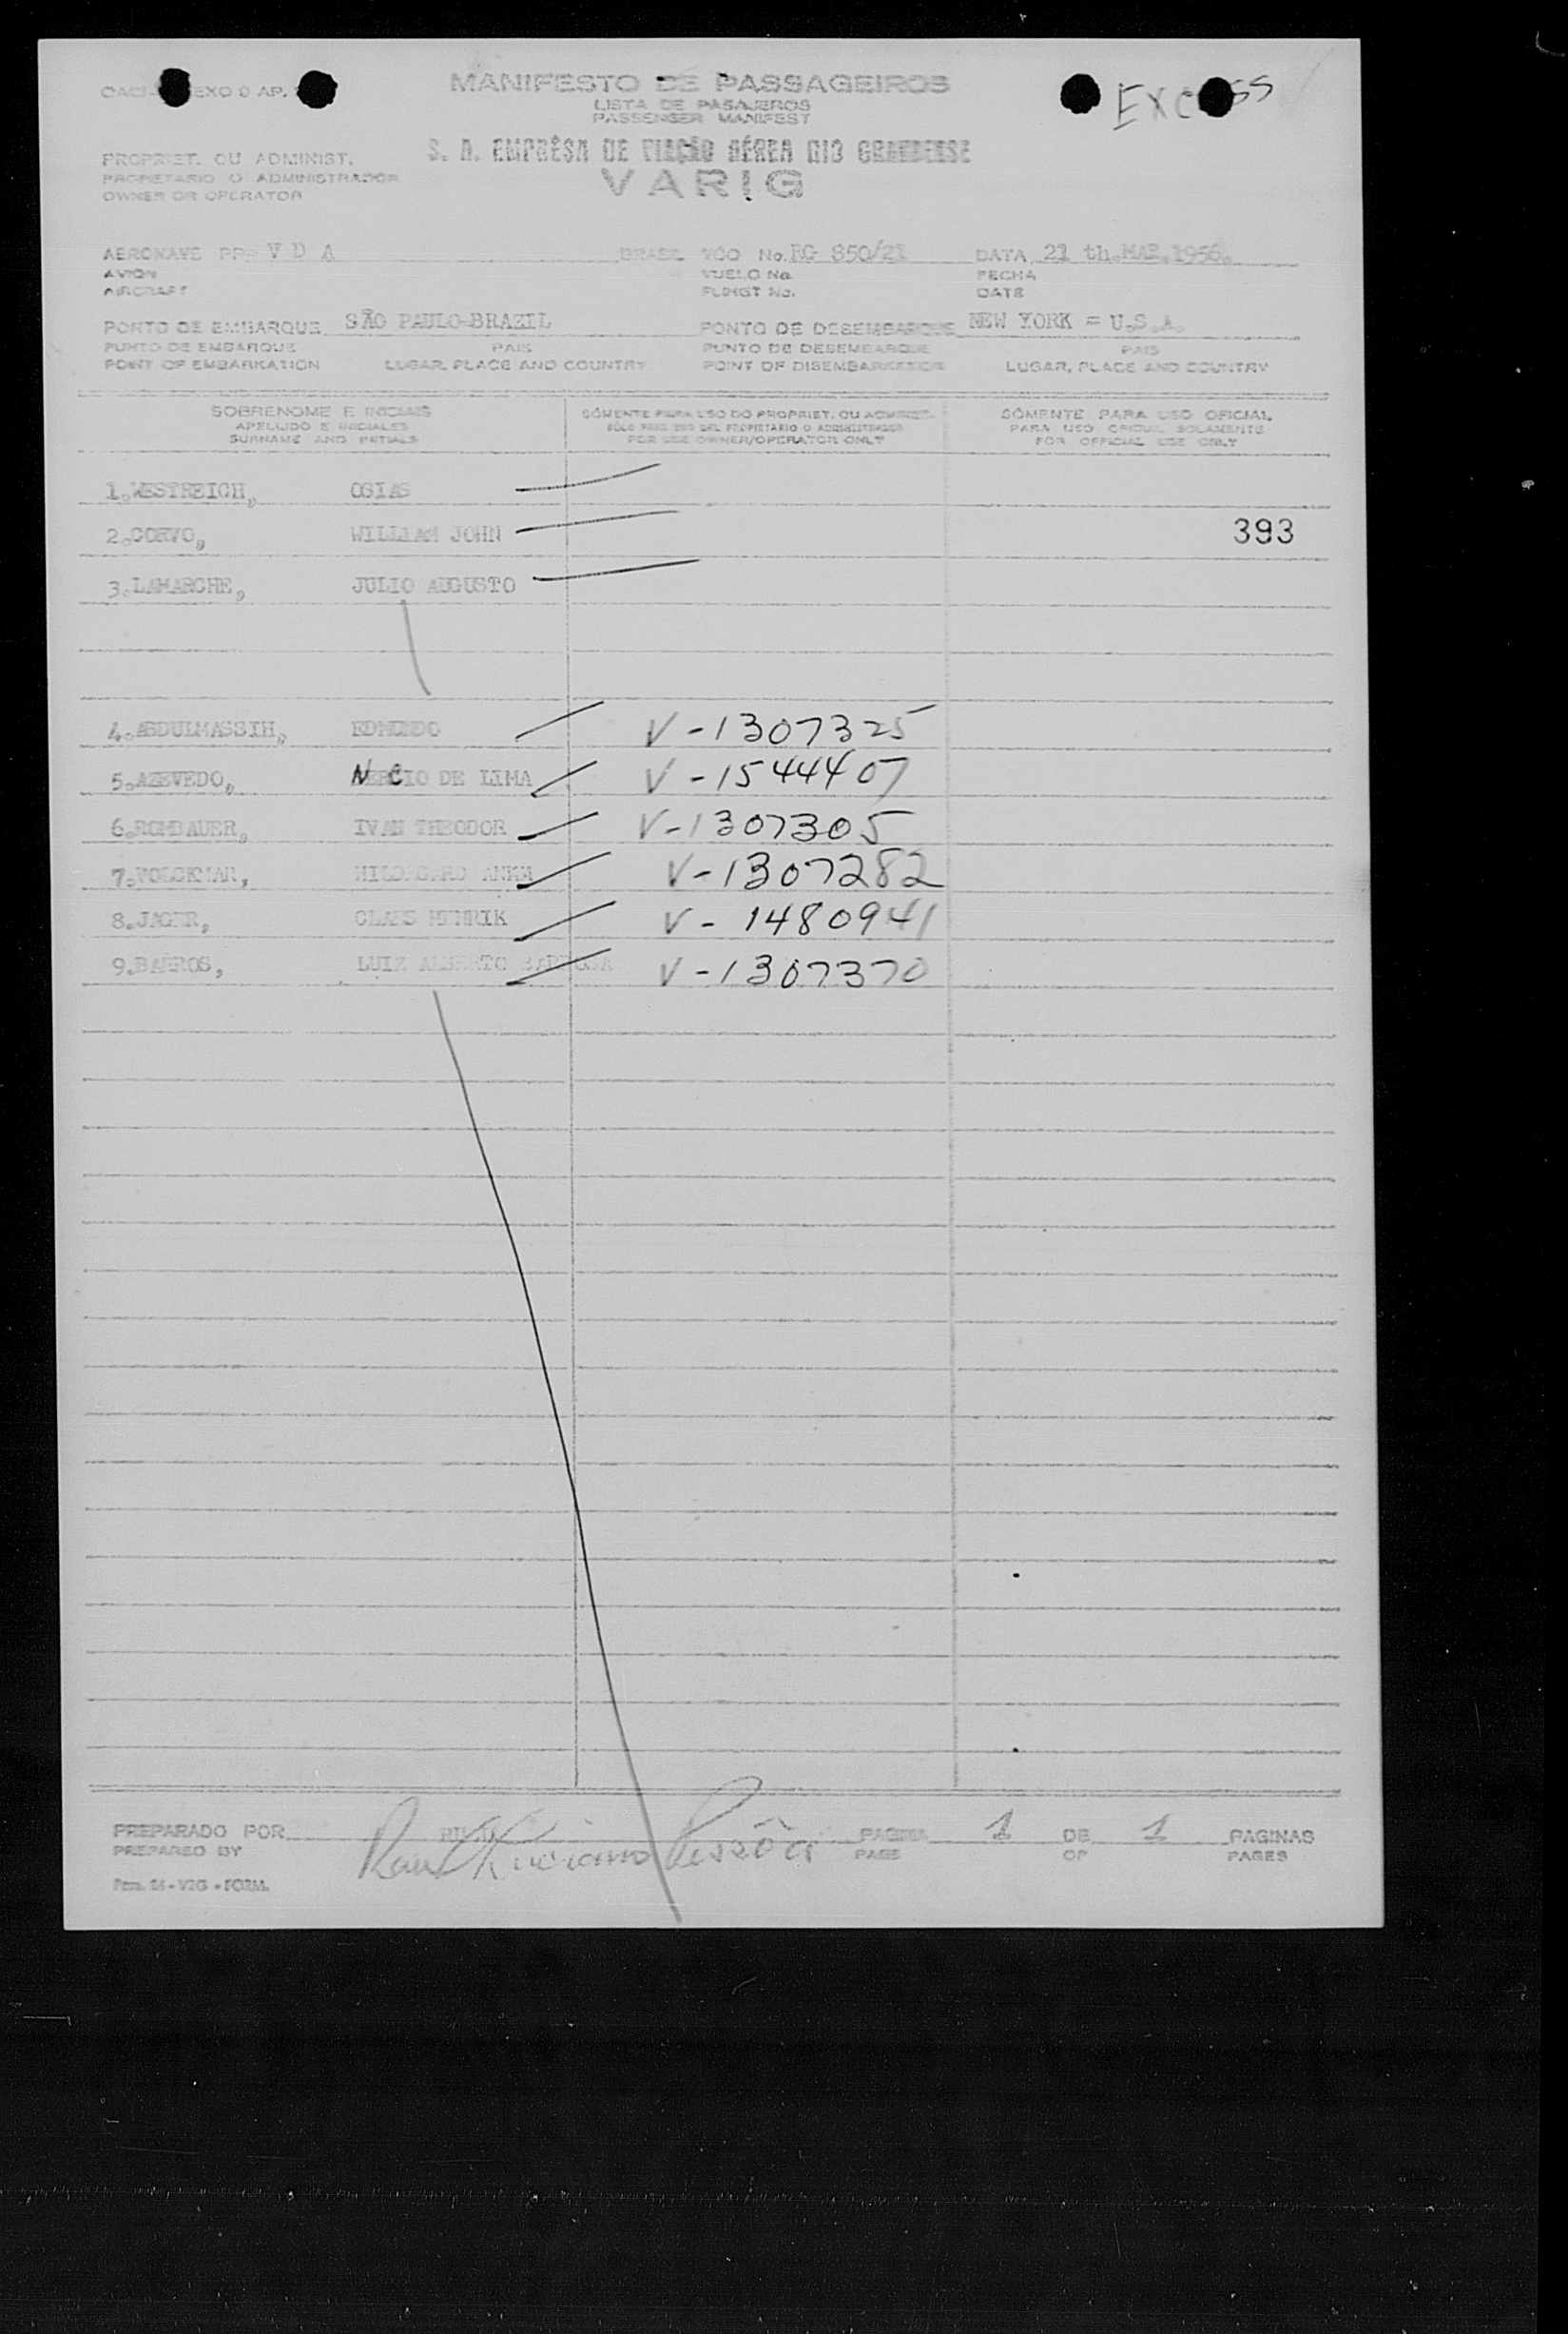 EXO 9 AP.
MANIFESTO DE PASSAGEIROS
LISTA DE PASAJEROS
PASSENGER MANIFEST
S. A. EMPRÊSA DE VIAÇÃO AÉREA RIO GRANDENSE
VARIG
PROPRIET. OU ADMINIST.
PROPIETARIO O ADMINISTRADOR
OWNER OR OPERATOR
AERONAVE PP- V D A BRASIL VÔO No. RG 850/21 DATA 21 th.MAR.1956.
AVION VUELO No. FECHA
AIRCRAFT FLINGT No. DATE
PONTO DE EMBARQUE SÃO PAULO-BRAZIL PONTO DE DESEMBARQUE NEW YORK = U.S.A.
PUNTO DE EMBARQUE PAIS PUNTO DE DESEMBARQUE PAIS
POINT OF EMBARKATION LUGAR, PLACE AND COUNTRY POINT OF DISEMBARKATION LUGAR, PLACE AND COUNTRY
SOBRENOME E INICIAIS SÒMENTE PARA USO DO PROPRIET. OU ADMINIST. SÒMENTE PARA USO OFICIAL
APELLIDO E INICIALES SÓLO PARA USO DEL PROPIETARIO O ADMINISTRADOR PARA USO OFICIAL SOLAMENTE
SURNAME AND INITIALS FOR USE OWNER/OPERATOR ONLY FOR OFFICIAL USE ONLY
1.WESTREICH, OSIAS
2.CORVO, WILLIAM JOHN 393
3.LAMARCHE, JULIO AUGUSTO
4.ABDULMASSIH, EDMUNDO V-1307325
5.AZEVEDO, DE LIMA V-1544407
6.ROMBAUER, IVAN THEODOR V-1307305
7. V-1307282
8.JAGER, CLAES HENRIK V-1480941
9.BARROS, LUIZ ALBERTO BARBOSA V-1307370
PREPARADO POR PAGINA 1 DE 1 PAGINAS
PREPARED BY PAGE OF PAGES